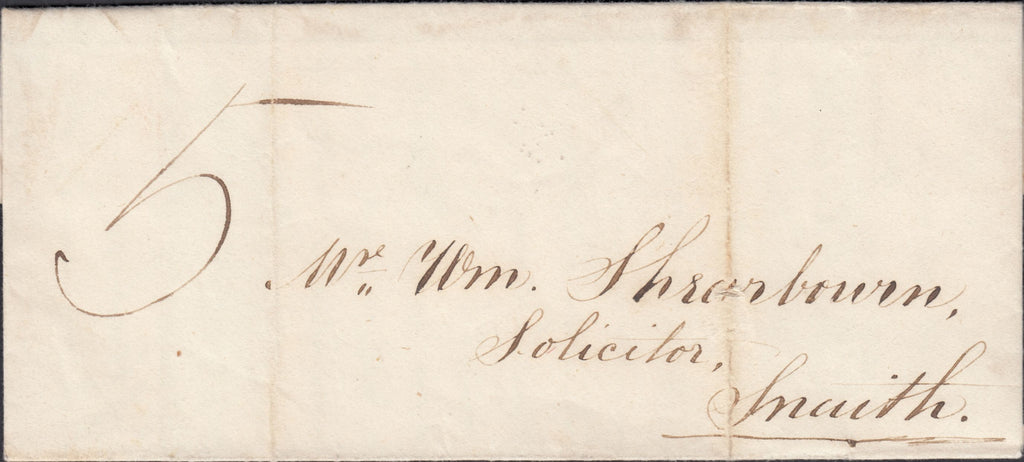 5
Mr. Wm. Shearbourn,
Solicitor,
Snaith.